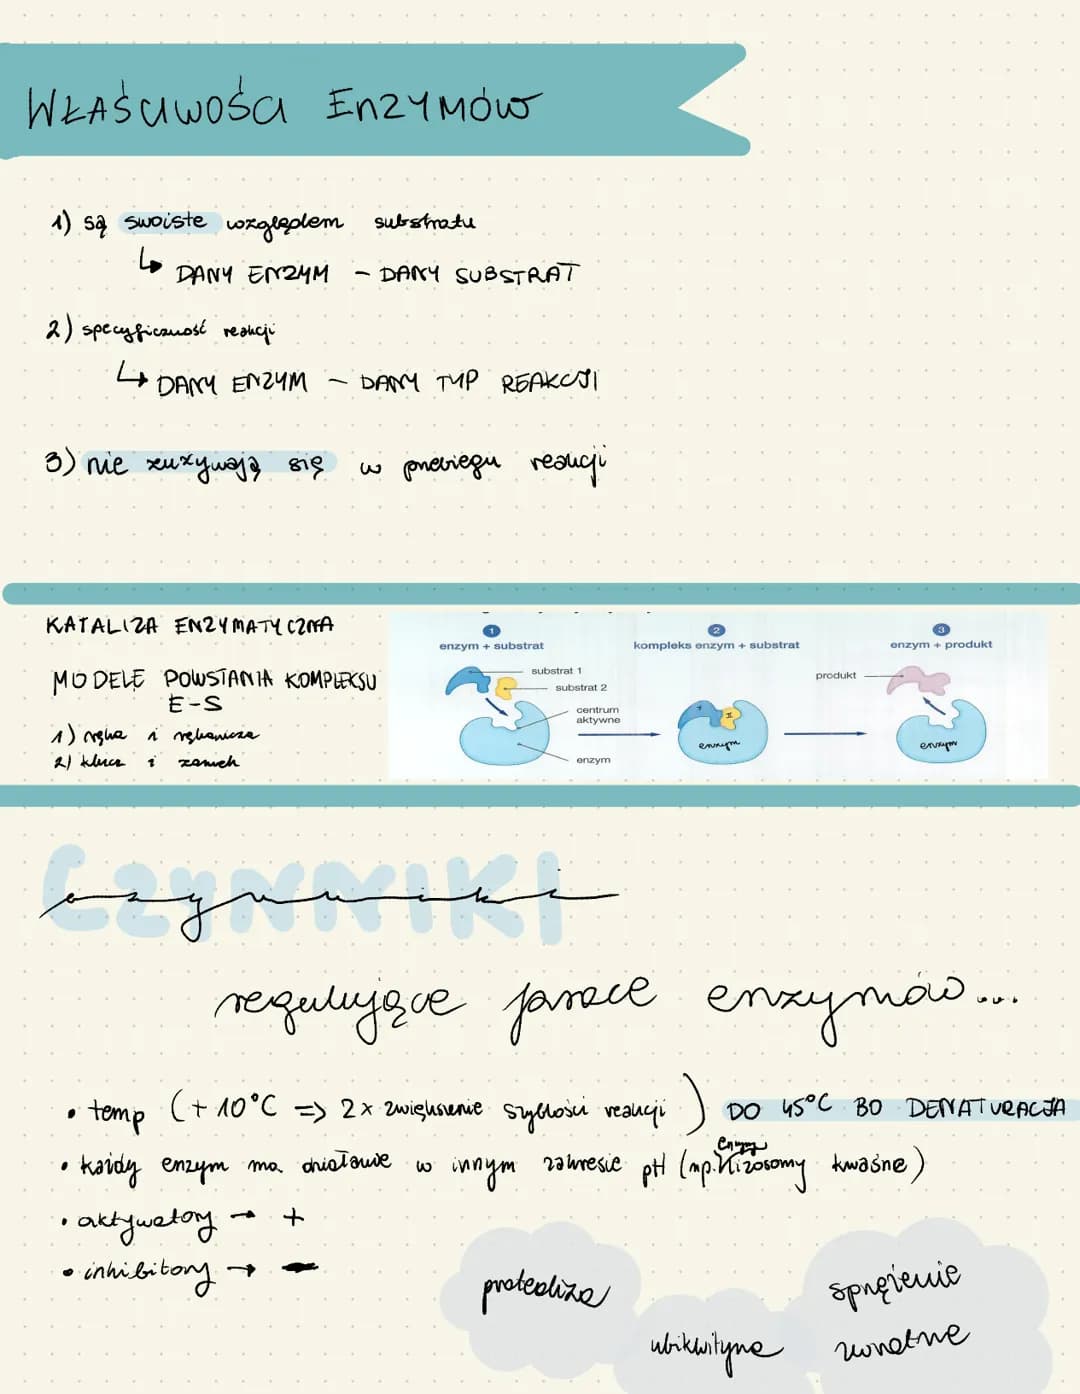 WŁAŚCIWOŚCI ENZYMÓW
1) są swoiste względem substratu
↳ DANY ENZYM - DANY SUBSTRAT
2) specyficzność reakcji
↳ DANY ENZYM - DANY TYP REAKCJI
3) nie zużywają się w przebiegu reakcji
KATALIZA ENZYMATYCZNA
MODELE POWSTANIA KOMPLEKSU
E-S
1) ręka i rękawicza
2) klucz i zamek
1
enzym + substrat
substrat 1
substrat 2
centrum
aktywne
enzym
2
kompleks enzym + substrat
enzym
3
enzym + produkt
produkt
enzym
CZYNNIKI
czynniki
regulujące pracę enzymów...
• temp (+ 10°C => 2x zwiększenie szybkości reakcji) DO 45°C BO DENATURACJA
• każdy enzym ma działanie w innym zakresie pH (np. enzymy lizosomy kwaśne)
• aktywatory → +
• inhibitory → -
proteoliza
ubikwityna
sprzężenie
zwrotne